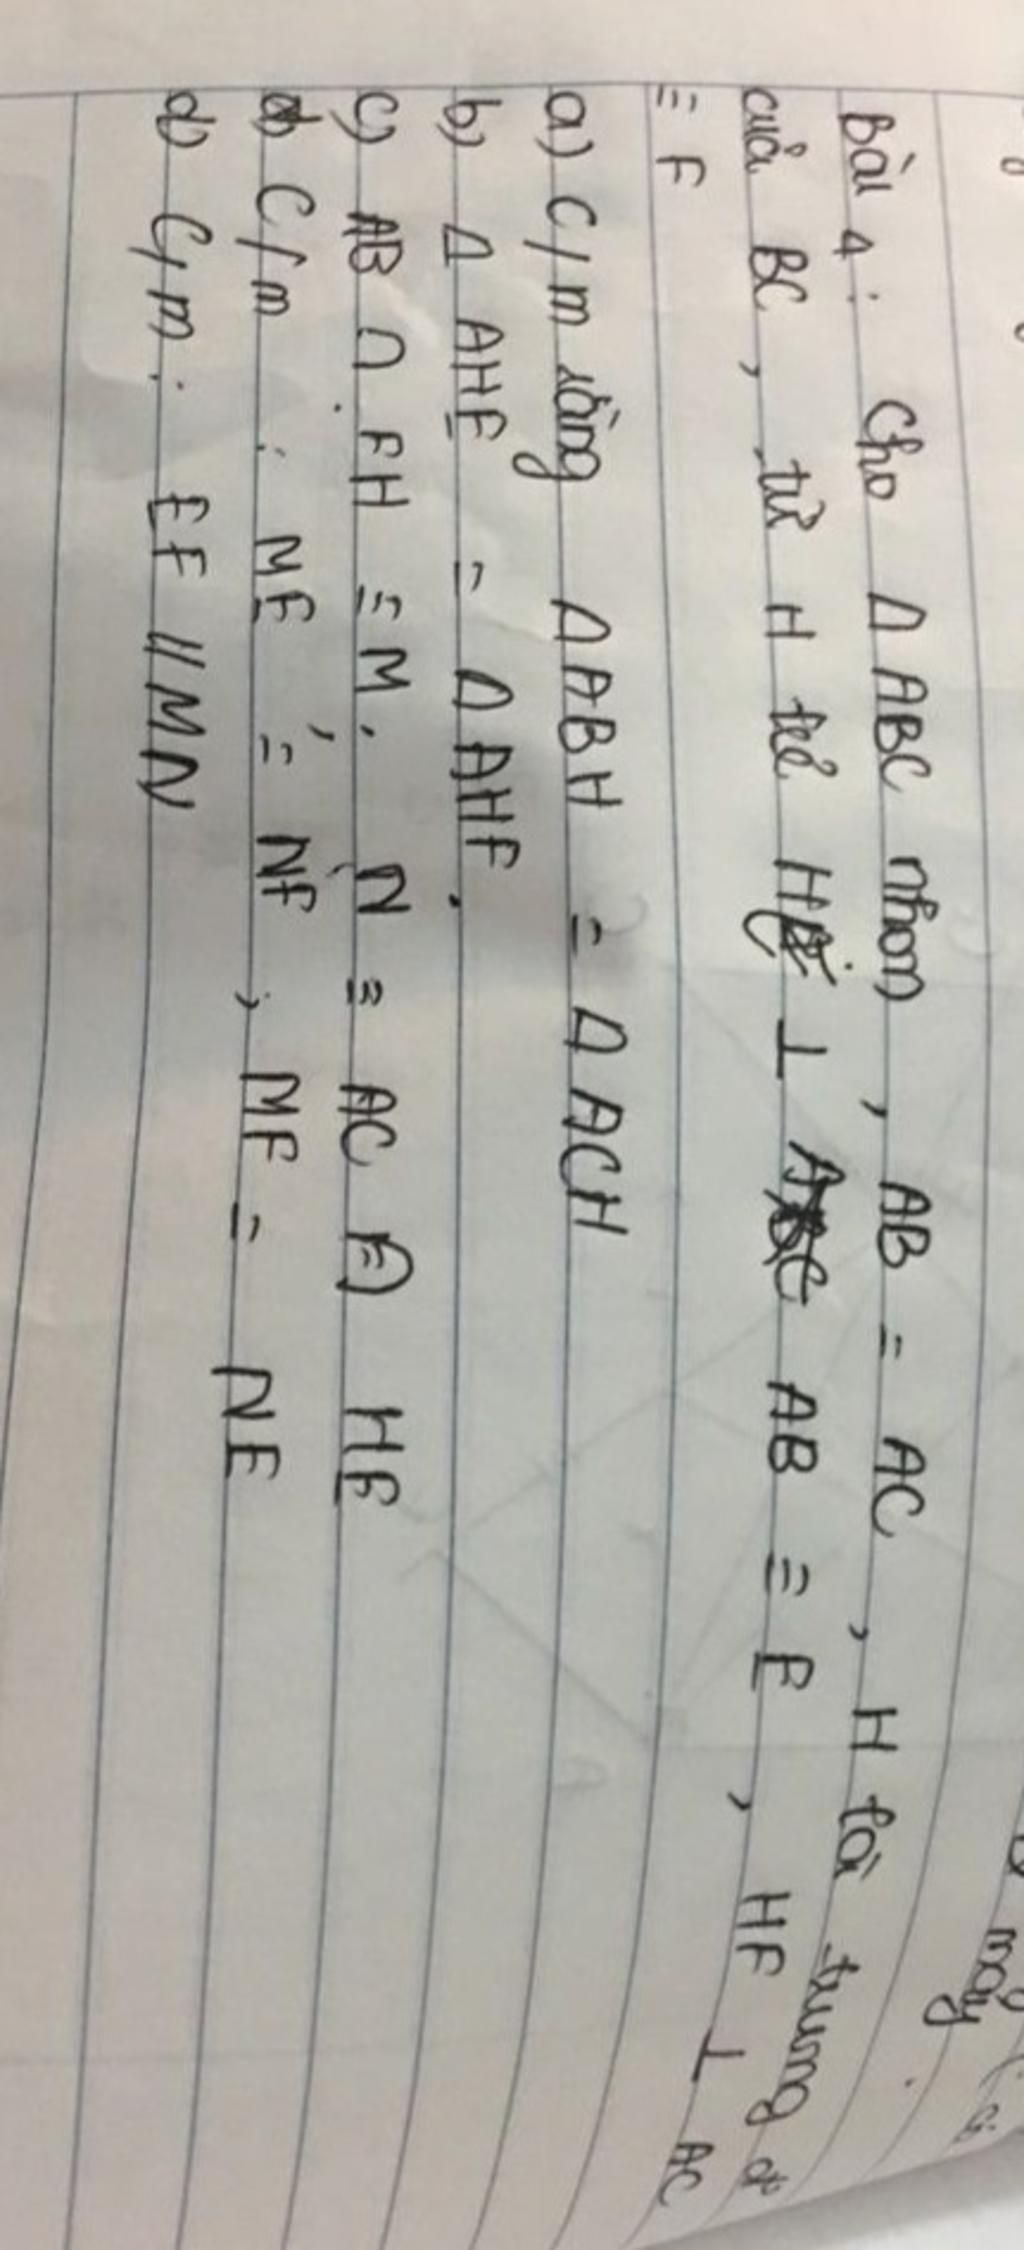 Bài 4 : Cho Δ ABC nhọn , AB = AC , H là trung đ
của BC , từ H kẻ HE ⊥ AB ≡ E , HF ⊥ AC
≡ F
a) C/m rằng Δ ABH = Δ ACH
b) Δ AHE = Δ AHF .
c) AB ∩ FH ≡ M , N ≡ AC ∩ HE
C/m : ME = NF , MF = NE
d) C/m : EF // MN